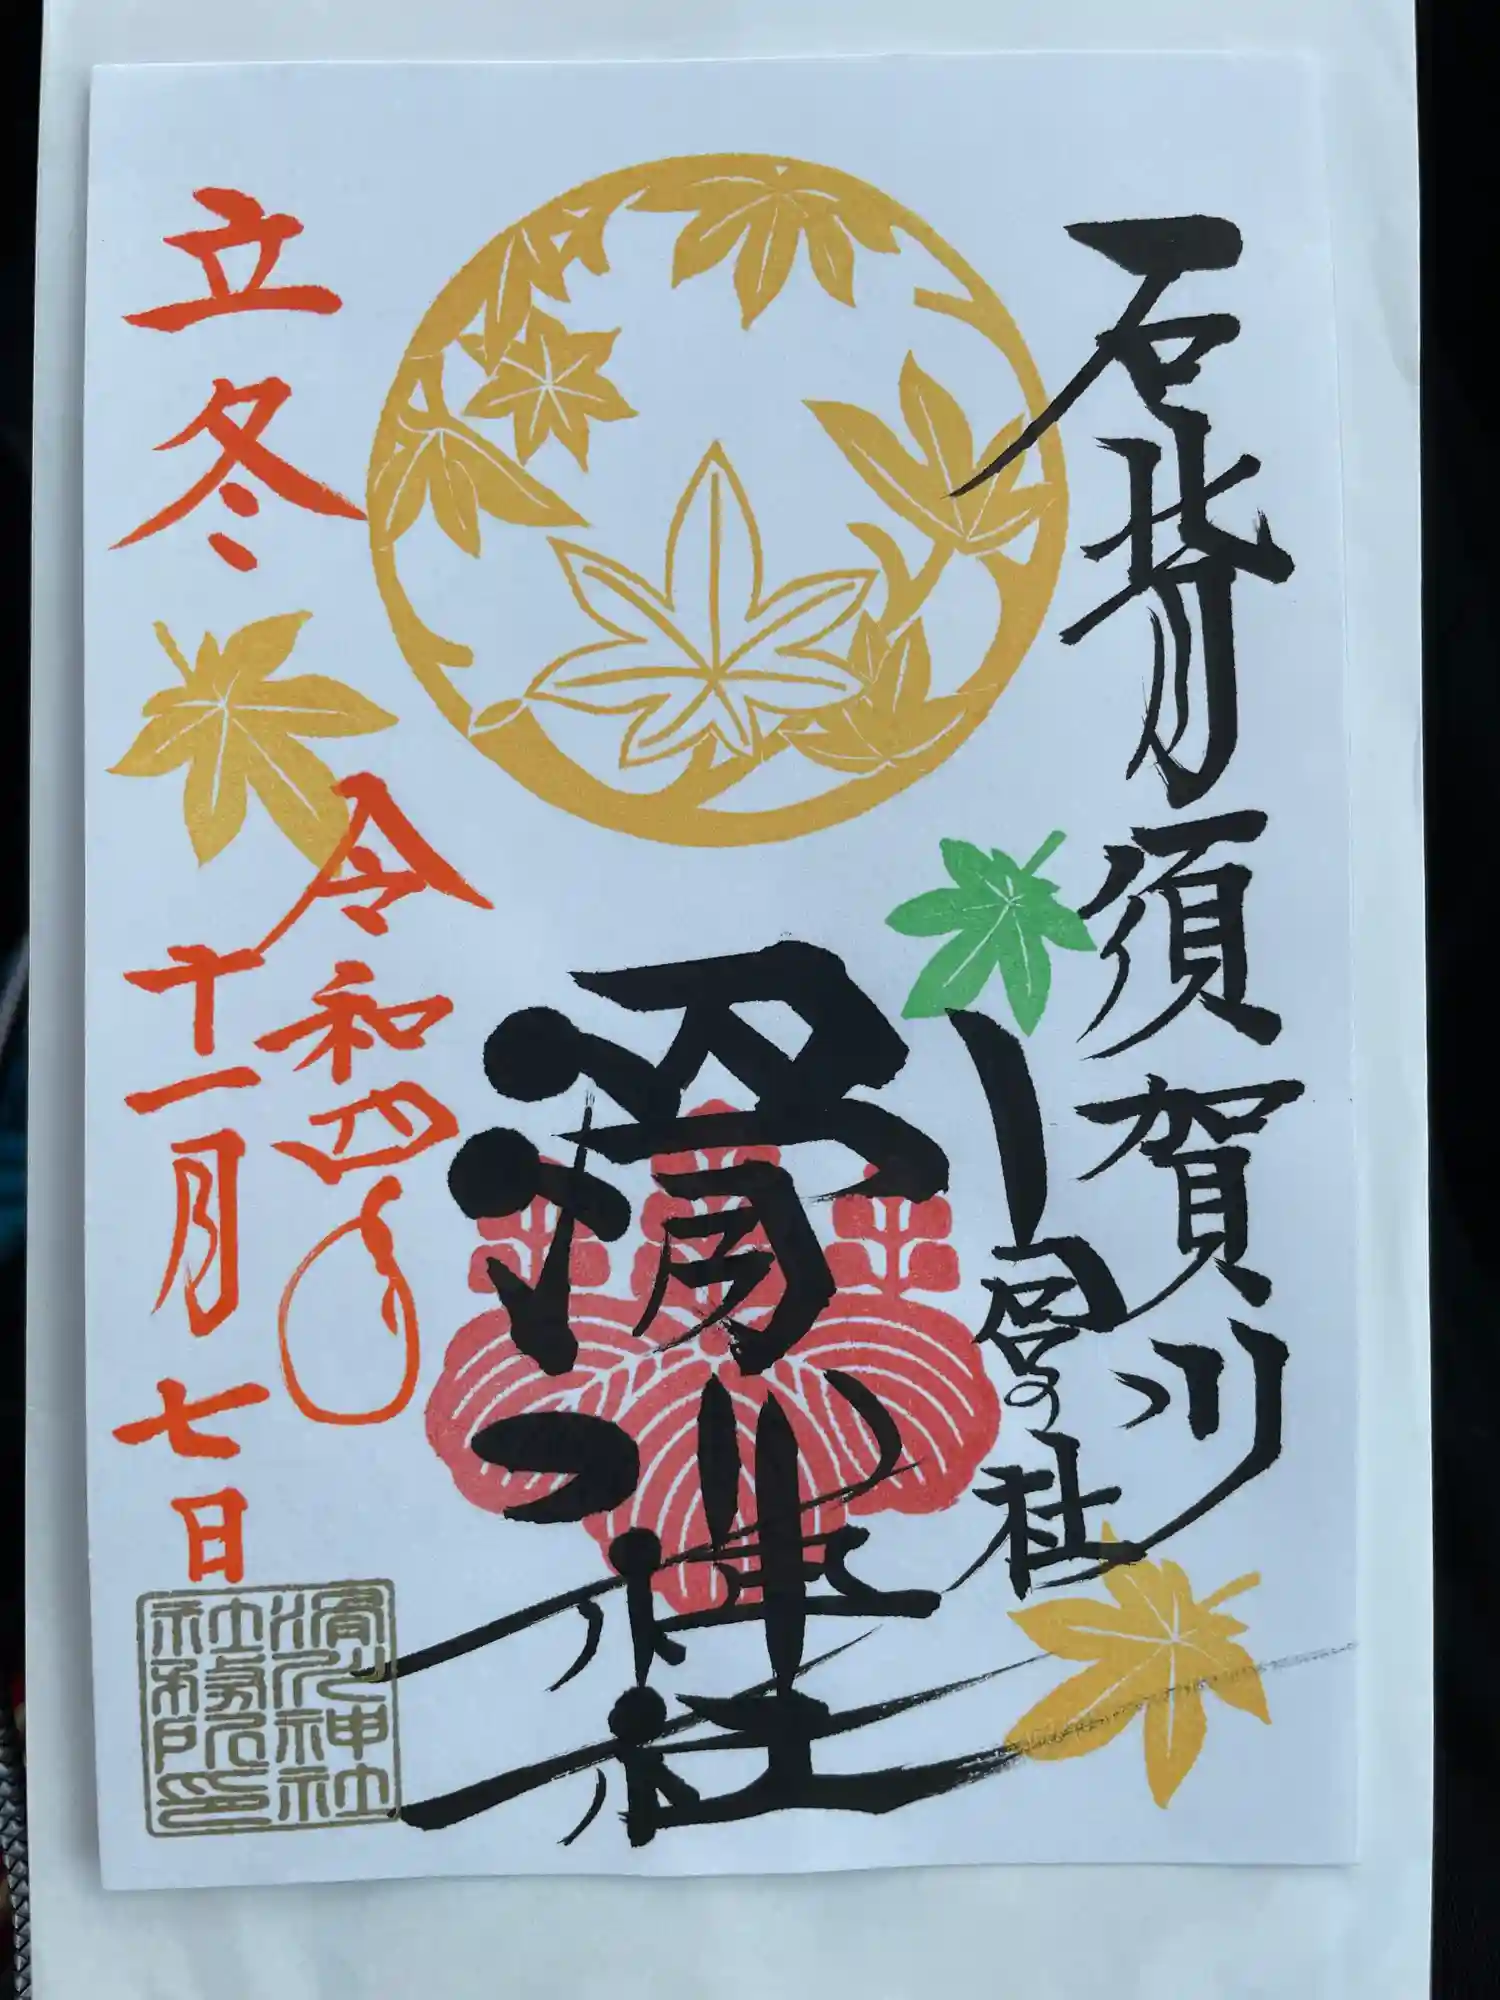 石背須賀川
宮の
滑川神社
立冬
令和四年
十一月七日
滑川神社
社務所印